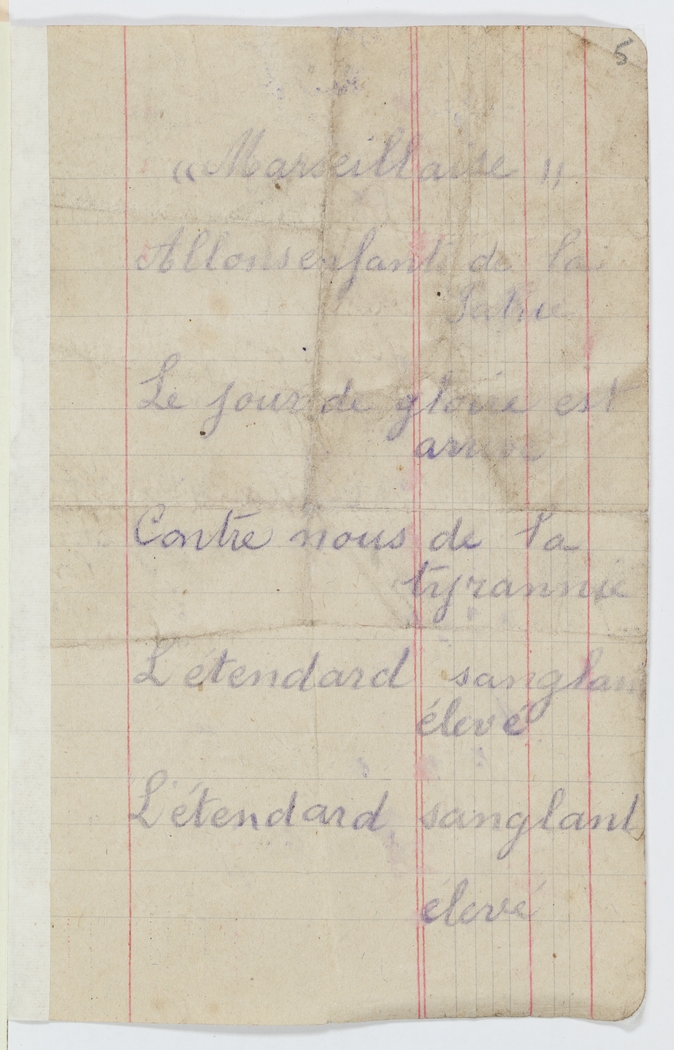 5
„ Marseillaise "
Allons enfants de la
Patrie
Le jour de gloire est
arrivé
Contre nous de la
tyrannie
L'étendard sanglant
élevé
L'étendard sanglant
élevé